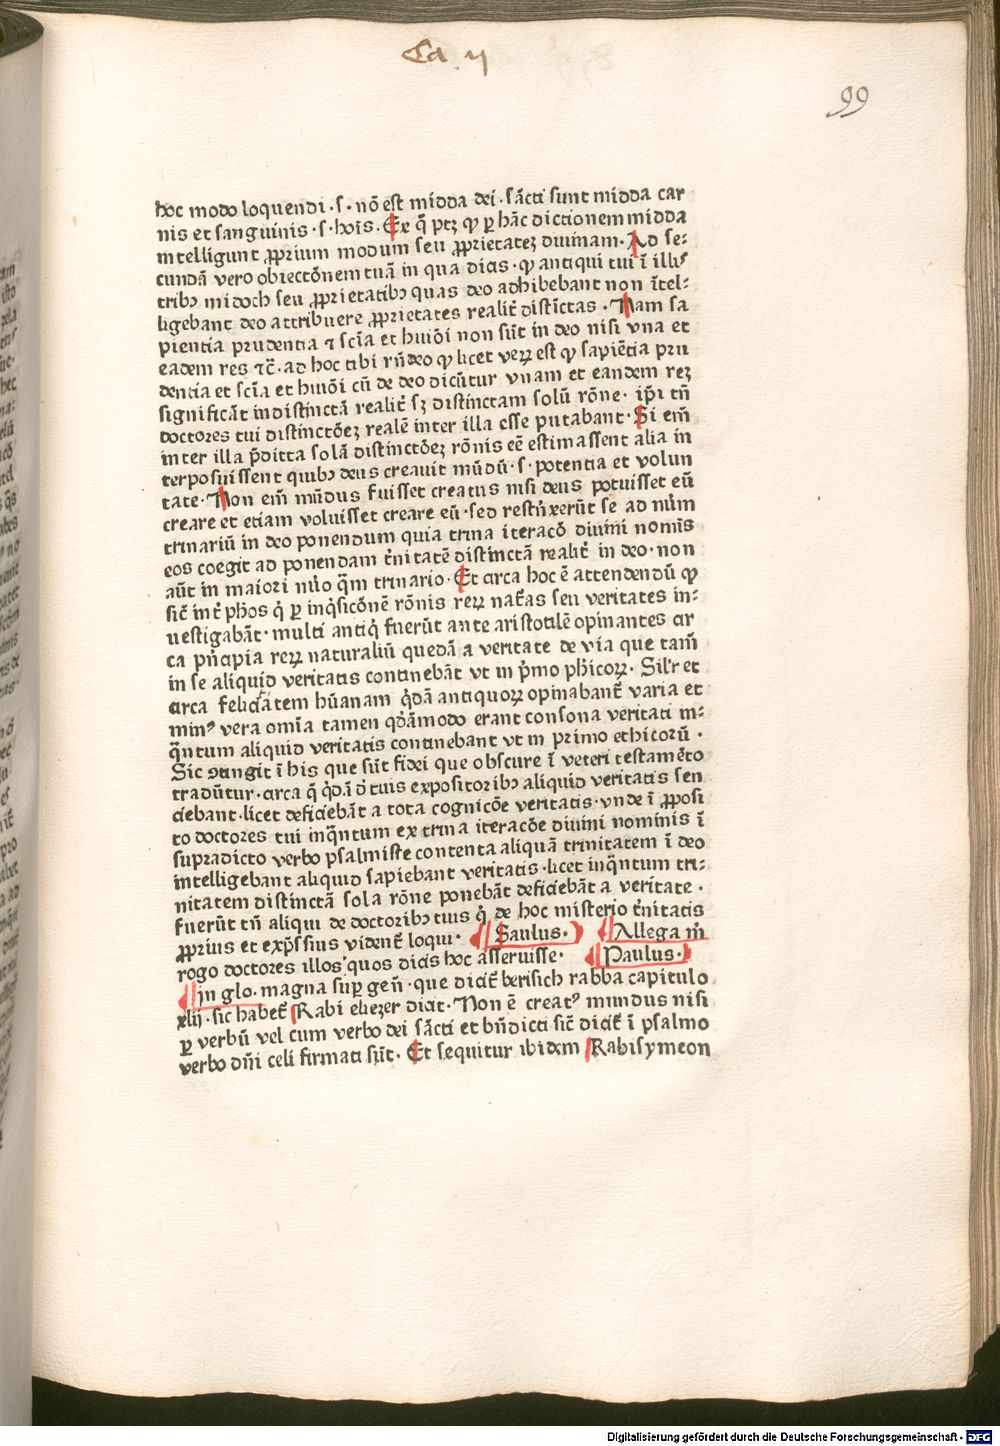 Ca. ij
99
hoc modo loquendi · s · nō est midda dei · sācti sunt midda car
nis et sanguinis · s · hoīs · Ex q̄ ptꝫ ꝙ ꝑ hāc dictionem midda
intelligunt ꝓprium modum seu ꝓprietateꝫ diuinam · Ad se:
cundā vero obiectōnem tuā in qua dicis · ꝙ antiqui tui ī illis
tribꝫ midoch seu ꝓprietatibꝫ quas deo adhibebant non ītel:
ligebant deo attribuere ꝓprietates realit̄ distīctas · Nam sa
pientia prudentia ⁊ scīa et huiōi non sūt in deo nisi vna et
eadem res ⁊c̄ · ad hoc tibi rn̄deo ꝙ licet veꝝ est ꝙ sapiētia pru
dentia et scīa et huiōi cū de deo dicūtur vnam et eandem reꝫ
significāt indistinctā realit̄ sꝫ distinctam solū rōne · ip̄i tn̄
doctores tui distinctōeꝫ realē inter illa esse putabant · Si em̄
inter illa p̄dicta solā distinctōeꝫ rōnis eē estimassent alia in
terposuissent quibꝫ deus creauit mūdū · s · potentia et volun
tate · Non em̄ mūdus fuisset creatus nisi deus potuisset eū
creare et etiam voluisset creare eū · sed restrīxerūt se ad nūm
trinariū in deo ponendum quia trina iteracō diuini nomīs
eos coegit ad ponendam t̄nitatē distinctā realit̄ in deo · non
aūt in maiori nūo q̄m trinario · Et circa hoc ē attendendū ꝙ
sic̄ int̄ ph̄os q̇ ꝑ inq̇sicōnē rōnis reꝝ nat̄as seu veritates in:
uestigabāt · multi antiq̇ fuerūt ante aristotilē opinantes cir
ca pn̄cipia reꝝ naturaliū quedā a veritate de via que tam̄
in se aliquid veritatis continebāt vt in p̄mo phicoꝝ · Silr̄ et
circa felicitatem hūanam q̇dā antiquoꝝ opinabant̄ varia et
minꝰ vera omīa tamen qdāmodo erant consona veritati in:
q̄ntum aliquid veritatis continebant vt in primo ethicorū ·
Sic ꝯtingit ī his que sūt fidei que obscure ī veteri testamēto
tradūtur · circa q̄ q̇dā d̄ tuis expositoribꝫ aliquid veritatis sen
ciebant · licet deficiebāt a tota cognicōe veritatis · vnde ī ꝓposi
to doctores tui inq̄ntum ex trina iteracōe diuini nominis ī
supradicto verbo psalmiste contenta aliquā trinitatem ī deo
intelligebant aliquid sapiebant veritatis · licet inq̄ntum tri:
nitatem distinctā sola rōne ponebāt deficiebāt a veritate ·
fuerūt tn̄ aliqui de doctoribꝫ tuis q̇ de hoc misterio t̄nitatis
ꝓprius et exp̄ssius vident̄ loqui · Saulus · Allega m̄
rogo doctores illos quos dicis hoc asseruisse · Paulus ·
in glo · magna suꝑ gen̄ · que dicit̄ berisich rabba capitulo
xlij · sic habet̄ Rabi eliezer dicit · Non ē creatꝰ mundus nisi
ꝑ verbū vel cum verbo dei sācti et bn̄dicti sic̄ dicit̄ ī psalmo
verbo dn̄i celi firmati sūt · Et sequitur ibidem Rabi symeon
Digitalisierung gefördert durch die Deutsche Forschungsgemeinschaft - DFG